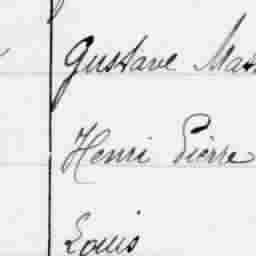 Gustave
Henri Pierre
Louis